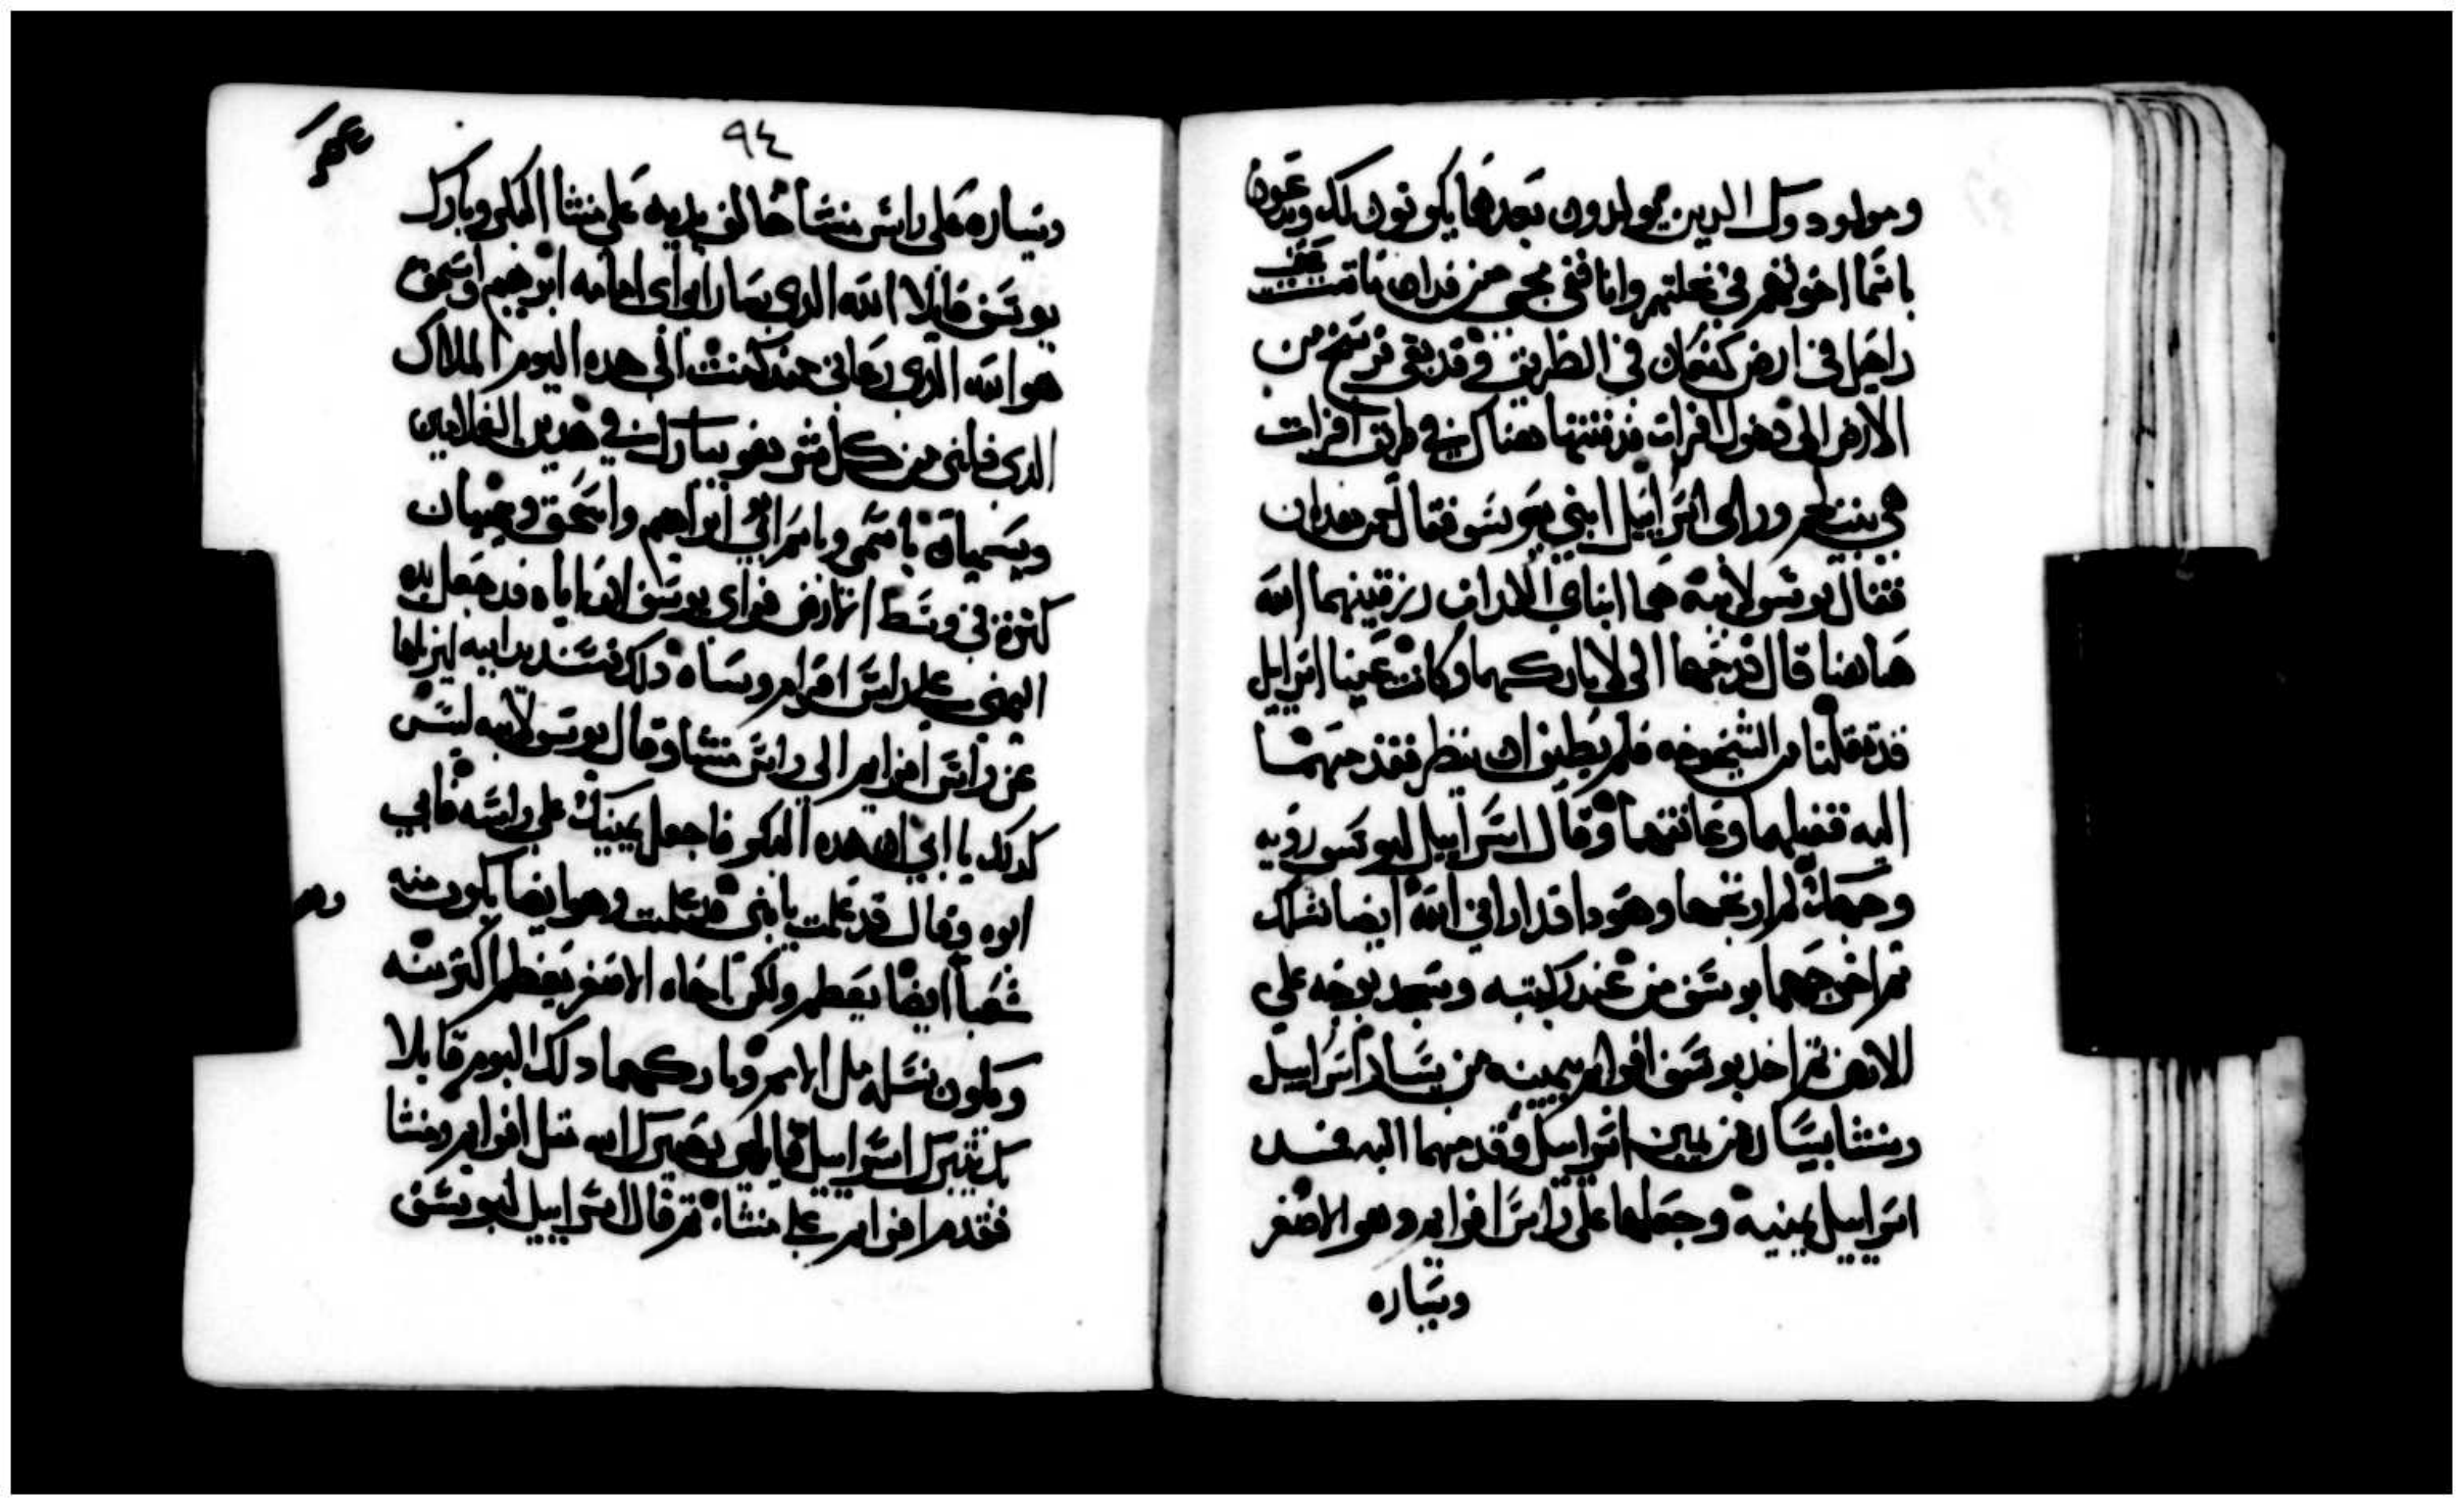 ومولودوك الدين يولدون بعدها يكونون لك ويدعون
باسما اخوتهم في نحلتهم وانا ففي مجي من فدان ماتت
راحيل في ارض كنعان في الطريق وقد بقي فرسخ من
الارض الى دخول افرات فدفنتها هناك في طريق افرات
هي بيت لحم وراى اسراييل ابني يوسف فقال من هدان
فقال يوسف لابيه هما ابناي اللدان رزقنيهما الله
هاهنا قال قدمهما الي لاباركهما وكانت عينا اسراييل
قد تقلتا من الشيخوخه فلم يطيق ان ينظر فقدمهما
اليه فقبلهما وعانقهما وقال اسراييل ليوسف رويه
وجهك لم ارتجها وهودا قد اراني الله ايضا نسلك
تم اخرجهما يوسف من عند ركبتيه وسجد بوجهه علي
الارض تم اخد يوسف افرايم بيمينه من يسار اسراييل
ومنشا بيساره من يمين اسراييل وقدمهما اليه فمد
اسراييل يمينه وجعلها علي راس افرايم وهو الاصغر
ويساره
٩٤
ويساره علي راس منشا خالف يديه علي منشا البكر وبارك
يوسف قايلا الله الدي سار ابواي امامه ابرهيم واسحق
هو الله الدي رعاني مند كنت الى هده اليوم الملاك
الدي فكني من كل شر هو يبارك في هدين الغلامين
ويسميان باسمي وباسم ابوي ابراهيم واسحق وينميان
كترة في وسط الارض فراى يوسف ان اباه قد جعل يده
اليمني على راس افرايم وساه دلك فسند يد ابيه ليزيلها
عن راس افرايم الى راس منشا وقال يوسف لابيه ليس
كدلك يا ابي ان هده البكر فاجعل يمينك علي راسه فابي
ابوه وقال قد علمت يابني قد علمت وهو ايضا يكون منه
شعبا ايضا يعظم ولكن اخاه الاصغر يعظم اكتر منه
ويكون نسله مل الامم وباركهما دلك اليوم قايلا
بك يتبرك اسراييل قايلين يصيرك الله متل افرايم ومنشا
فقدم افرايم على منشا تم قال اسراييل ليوسف